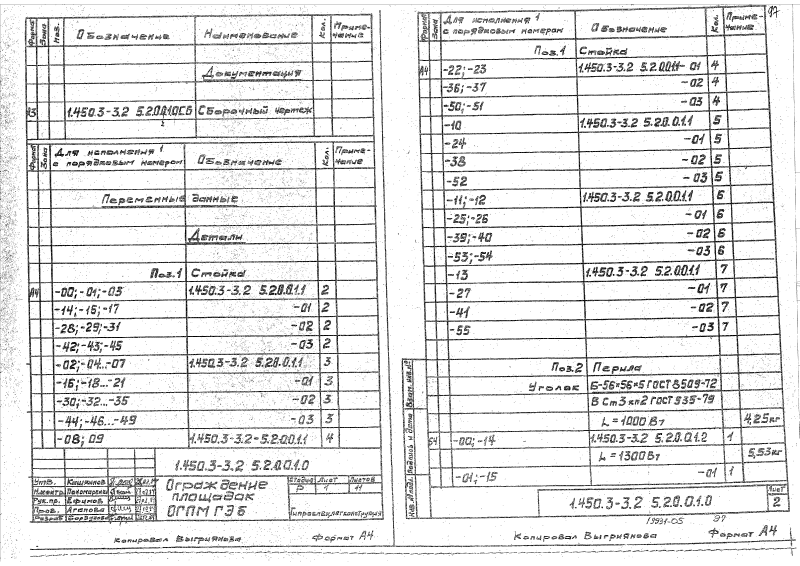 Форма Зона Поз. Обозначение Наименование Кол. Примечание
Документация
А3 1.450.3-3.2 5.2.0.0.1.0СБ Сборочный чертеж
Форма Зона Для исполнения 1 с порядковым номером Обозначение Кол. Примечание
Переменные данные
Детали
Поз.1 Стойка
А4 -00;-01;-03 1.450.3-3.2 5.2.0.0.1.1 2
-14;-15;-17 -01 2
-28;-29;-31 -02 2
-42;-43;-45 -03 2
-02;-04...-07 1.450.3-3.2 5.2.0.0.1.1 3
-16;-18...-21 -01 3
-30;-32...-35 -02 3
-44;-46...-49 -03 3
-08; 09 1.450.3-3.2-5.2.0.0.1.1 4
1.450.3-3.2 5.2.0.0.1.0
Утв. Кашкинов
Н.контр. Пономарены
Рук.пр. Ефимов
Пров. Агапова
Разраб
Ограждение
площадок
ОГПМ ГЭБ
Стадия Лист Листов
Р 1 11
Копировал Выгриянова Формат А4
97
Форма Зона Для исполнения 1 с порядковым номером Обозначение Кол. Примечание
Поз.1 Стойка
А4 -22;-23 1.450.3-3.2 5.2.0.0.1.1-01 4
-36;-37 -02 4
-50;-51 -03 4
-10 1.450.3-3.2 5.2.0.0.1.1 5
-24 -01 5
-38 -02 5
-52 -03 5
-11;-12 1.450.3-3.2 5.2.0.0.1.1 6
-25;-26 -01 6
-39;-40 -02 6
-53;-54 -03 6
-13 1.450.3-3.2 5.2.0.0.1.1 7
-27 -01 7
-41 -02 7
-55 -03 7
Поз.2 Перила
Уголок Б-56×56×5 ГОСТ 8509-72
В Ст3 кп2 ГОСТ 535-79
L=1000 Вт 4,25кг
Б4 -00;-14 1.450.3-3.2 5.2.0.0.1.2 1
L=1300Вт 5,53кг
-01;-15 -01 1
Инв.№подл. Подпись и дата Взам.инв.№
1.450.3-3.2 5.2.0.0.1.0
Лист
2
19991-05 97
Копировал Выгриянова Формат А4